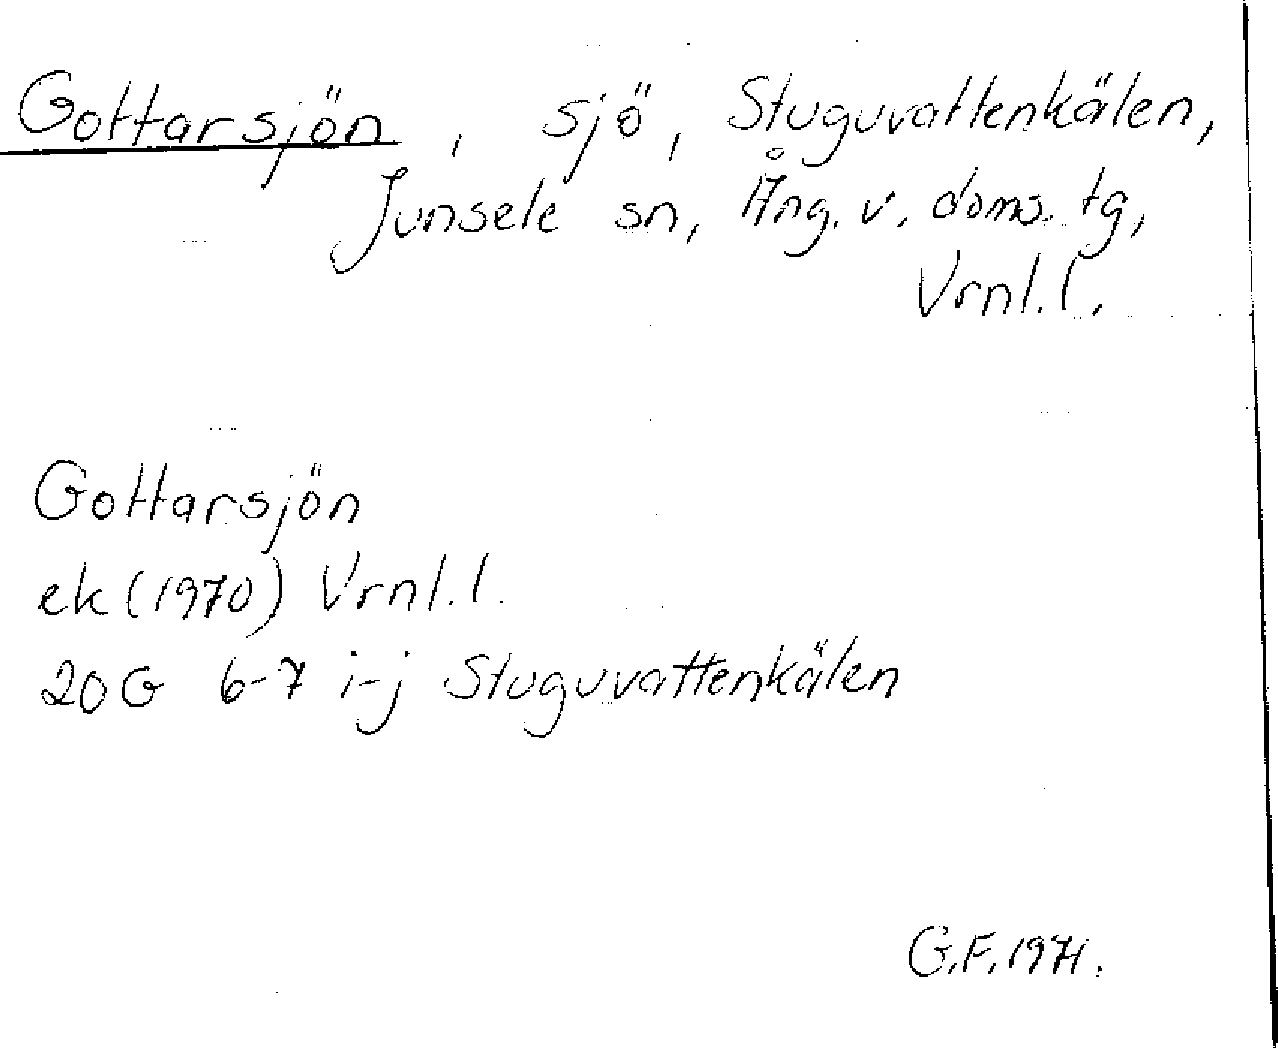 Gottarsjön, sjö, Stuguvattenkälen,
Junsele sn, Ång. v. doms. tg,
Vrnl. l.
Gottarsjön
ek (1970) Vrnl. l.
20 G 6-7 i-j Stuguvattenkälen
G.F. 1971.